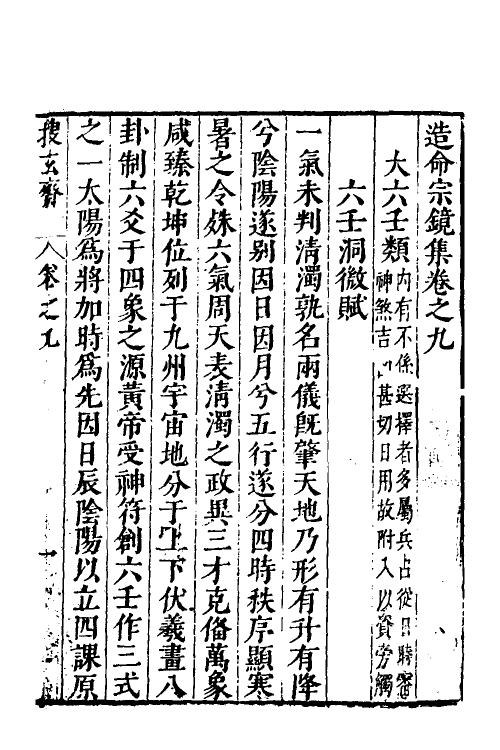 造命宗鏡集卷之九
大六壬類內有不係選擇者多屬兵占從日時審
神煞吉凶甚切日用故附入以資旁觸
六壬洞微賦
一氣未判清濁孰名兩儀旣肇天地乃形有升有降
兮陰陽遂別因日因月兮五行遂分四時秩序顯寒
暑之令姝六氣周天表清濁之政異三才克俻萬象
咸臻乾坤位列于九州宇宙地分于上下伏羲畫八
卦制六爻于四象之源黃帝受神符創六壬作三式
之一太陽爲將加時爲先因日辰陰陽以立四課原
搜玄齋 卷之九